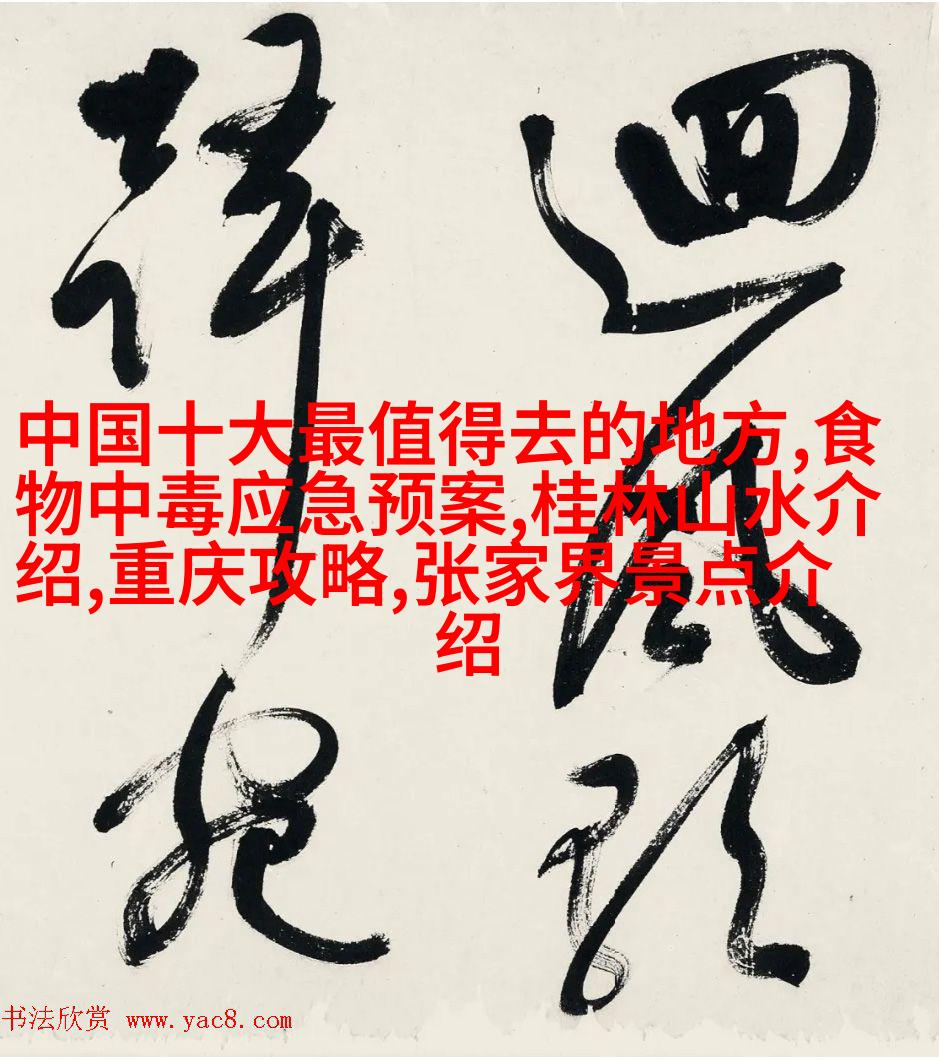 迴風
中国十大最值得去的地方,食
物中毒应急预案,桂林山水介
绍,重庆攻略,张家界景点介
绍
书法欣赏 www.yac8.com